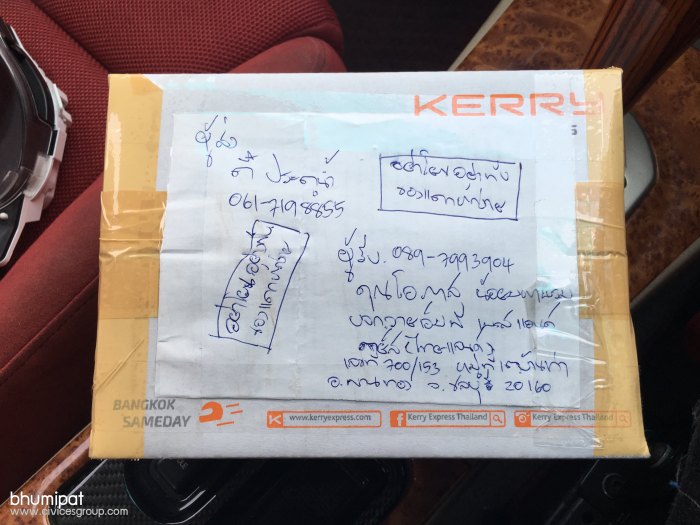 KERRY
ผู้ส่ง
ตี๋ ประดาน้ำ
061-7198855
อย่าโยน อย่าทิ้ง
ของแตกหักง่าย
อย่าโยน อย่าทิ้ง
ของแตกหักง่าย
ผู้รับ. 089-7993904
คุณโอภาส
เลขที่ 700/153 หมู่
อ.พานทอง จ.ชลบุรี 20160
BANGKOK
SAMEDAY
www.kerryexpress.com
Kerry Express Thailand
Kerry Express Thailand
bhumipat
www.civicesgroup.com